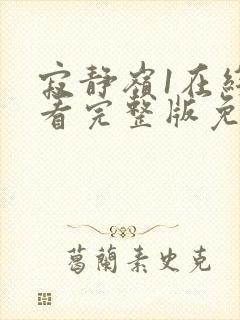 寂靜嶺1在
看完整版免
葛蘭素史克